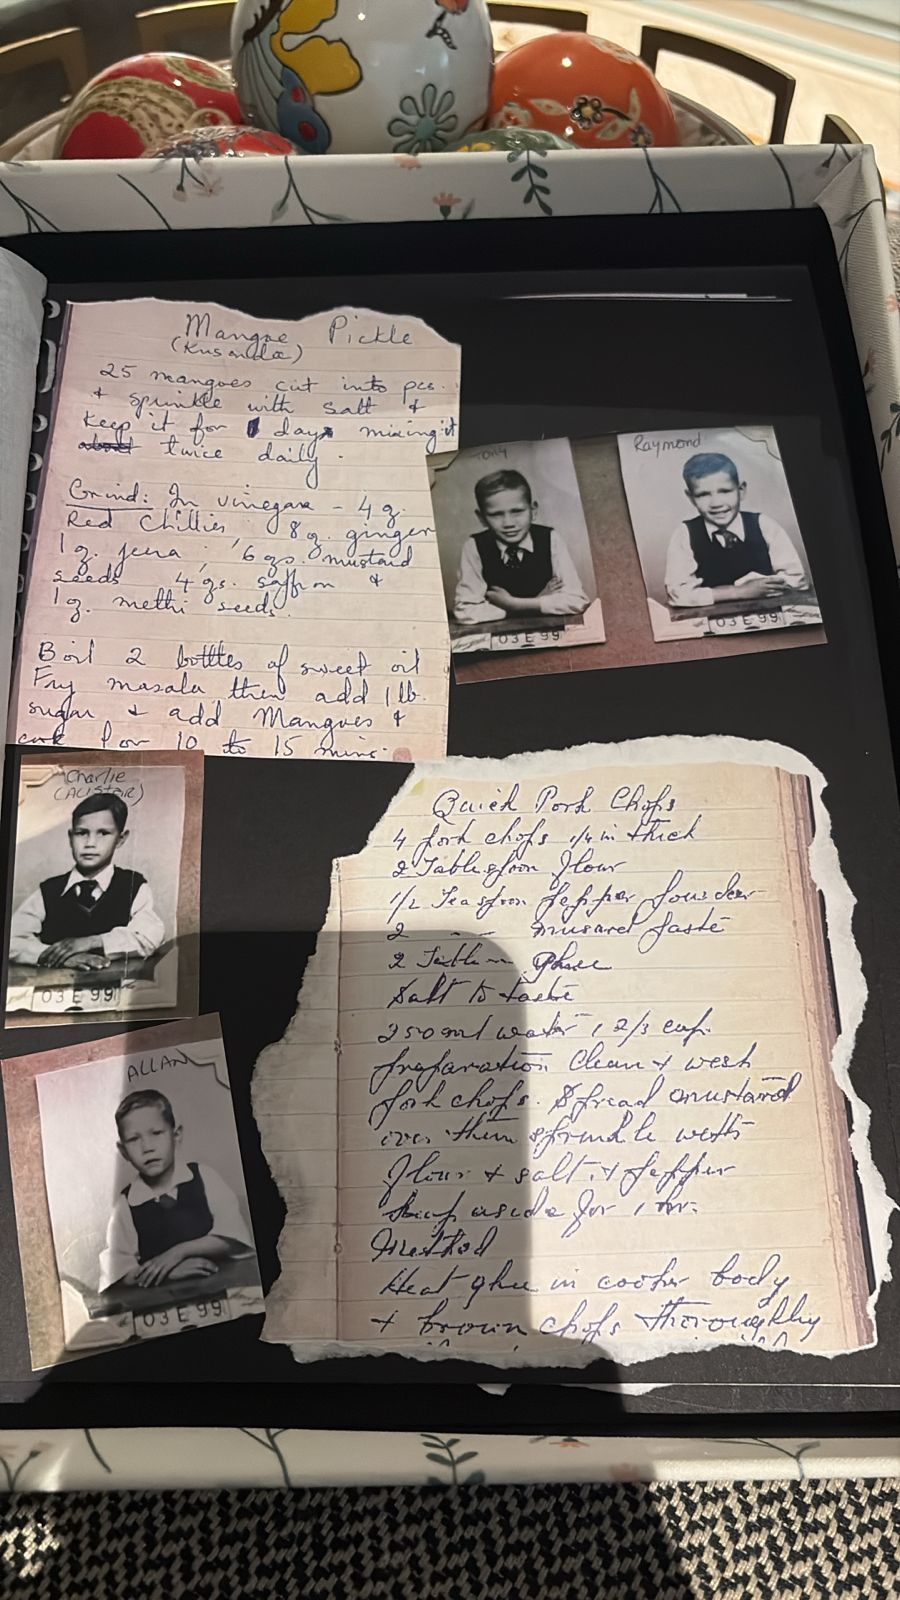 Mangoe Pickle
(Kusonda)
25 mangoes cut into pcs.
+ sprinkle with salt &
keep it for 1 day mixing it
about twice daily.
Grind: In vinegar - 4 g.
Red Chillies 8 g. ginger
1 g. jeera, 6 gs. mustard
seeds 4 gs. saffron &
1 g. methi seeds.
Boil 2 bottles of sweet oil
Fry masala then add 1 lb.
sugar & add Mangoes &
cook for 10 to 15 mins.
Tony
03E99
Raymond
03E99
Charlie
(ALISTAIR)
03E99
ALLAN
03E99
Quick Pork Chops
4 pork chops 1/4 in thick
2 Tablespoon flour
1/2 Teaspoon pepper powder
2 " " musard paste
2 Table " ghee
Salt to taste
250 ml water, 2/3 cup.
preparation Clean + wash
pork chops. Spread mustard
over them sprinkle with
flour + salt, + pepper
keep aside for 1 hr.
Method
Heat ghee in cooker body
+ brown chops thoroughly